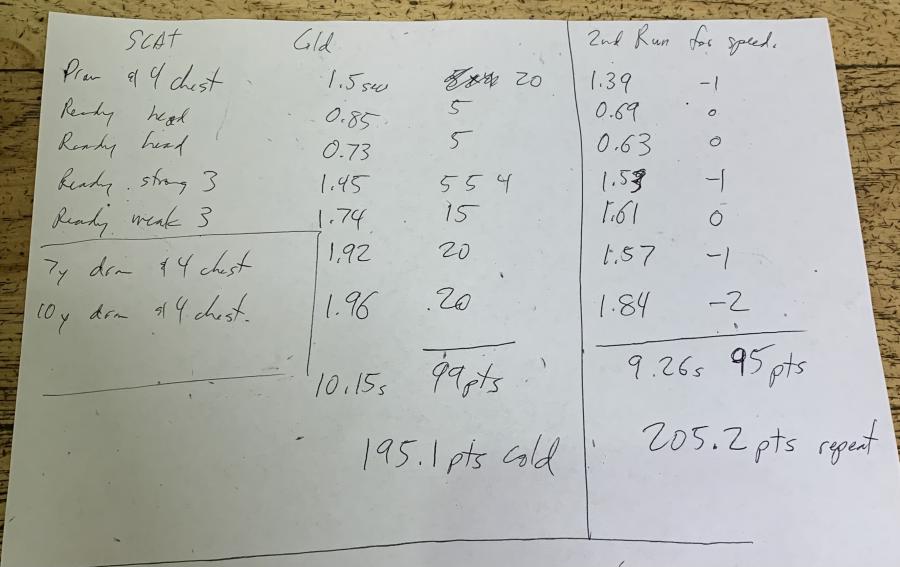 SCAT Cold 2nd Run for speed.
Draw & 4 chest 1.5 sec 20 1.39 -1
Ready head 0.85 5 0.69 0
Ready head 0.73 5 0.63 0
Ready strong 3 1.45 5 5 4 1.53 -1
Ready weak 3 1.74 15 1.61 0
7y draw & 4 chest 1.92 20 1.57 -1
10y draw & 4 chest. 1.96 20 1.84 -2
10.15s 99pts 9.26s 95pts
195.1 pts cold 205.2 pts repeat